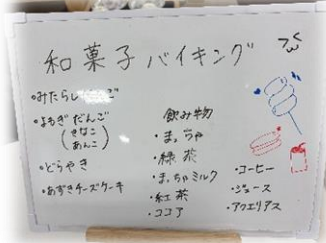 和菓子バイキング
・みたらしだんご
・よもぎだんご
(きなこ
あんこ)
・どらやき
・あずきチーズケーキ
飲み物
・まっちゃ
・緑茶
・まっちゃミルク
・紅茶
・ココア
・コーヒー
・ジュース
・アクエリアス